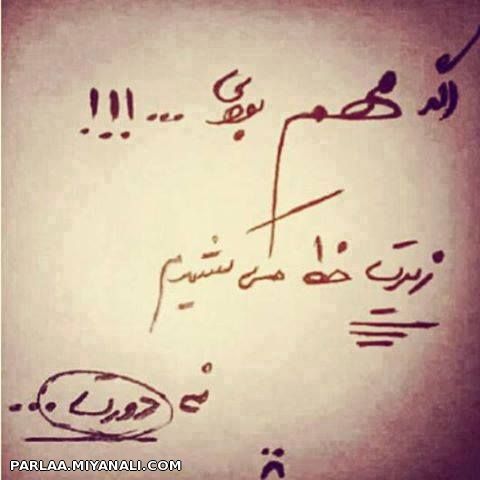 اگه مهم بودی ...!!!
زیرت خط می کشیدم
نه دورت ...
PARLAA.MIYANALI.COM